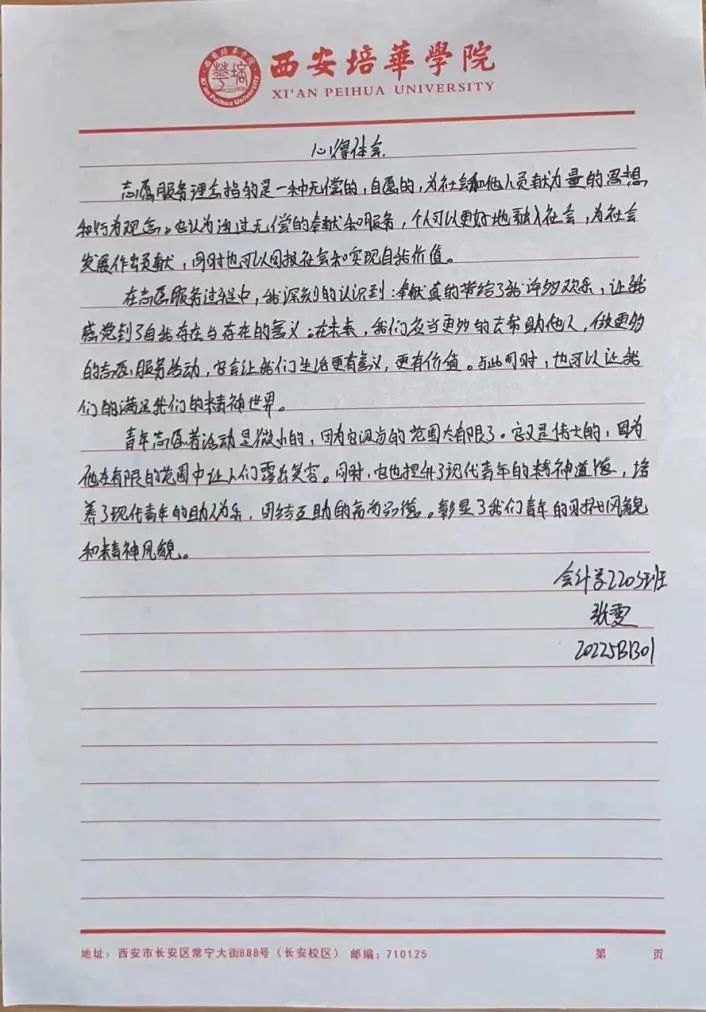 西安培華學院
XI'AN PEIHUA UNIVERSITY
Xi'an Peihua University
心得体会
志愿服务理念指的是一种无偿的,自愿的,为社会和他人贡献力量的思想
和行为观念。它认为通过无偿的奉献和服务,个人可以更好地融入社会,为社会
发展作出贡献,同时也可以回报社会和实现自我价值。
在志愿服务过程中,我深刻的认识到:奉献真的带给了我许多欢乐,让我
感觉到了自我存在与存在的意义。在未来,我们应当更多的去帮助他人,做更多
的志愿服务活动,它会让我们生活更有意义,更有价值。与此同时,也可以让我
们的满足我们的精神世界。
青年志愿者活动是微小的,因为它汲与的范围太有限了。它又是伟大的,因为
他在有限的范围中让人们露出笑容。同时,它也提升了现代青年的精神道德,培
养了现代青年的助人为乐,团结互助的高尚品德。彰显了我们青年的时代风貌
和精神风貌。
会计学2205班
张雯
地址:西安市长安区常宁大街888号(长安校区) 邮编:710125
第 页